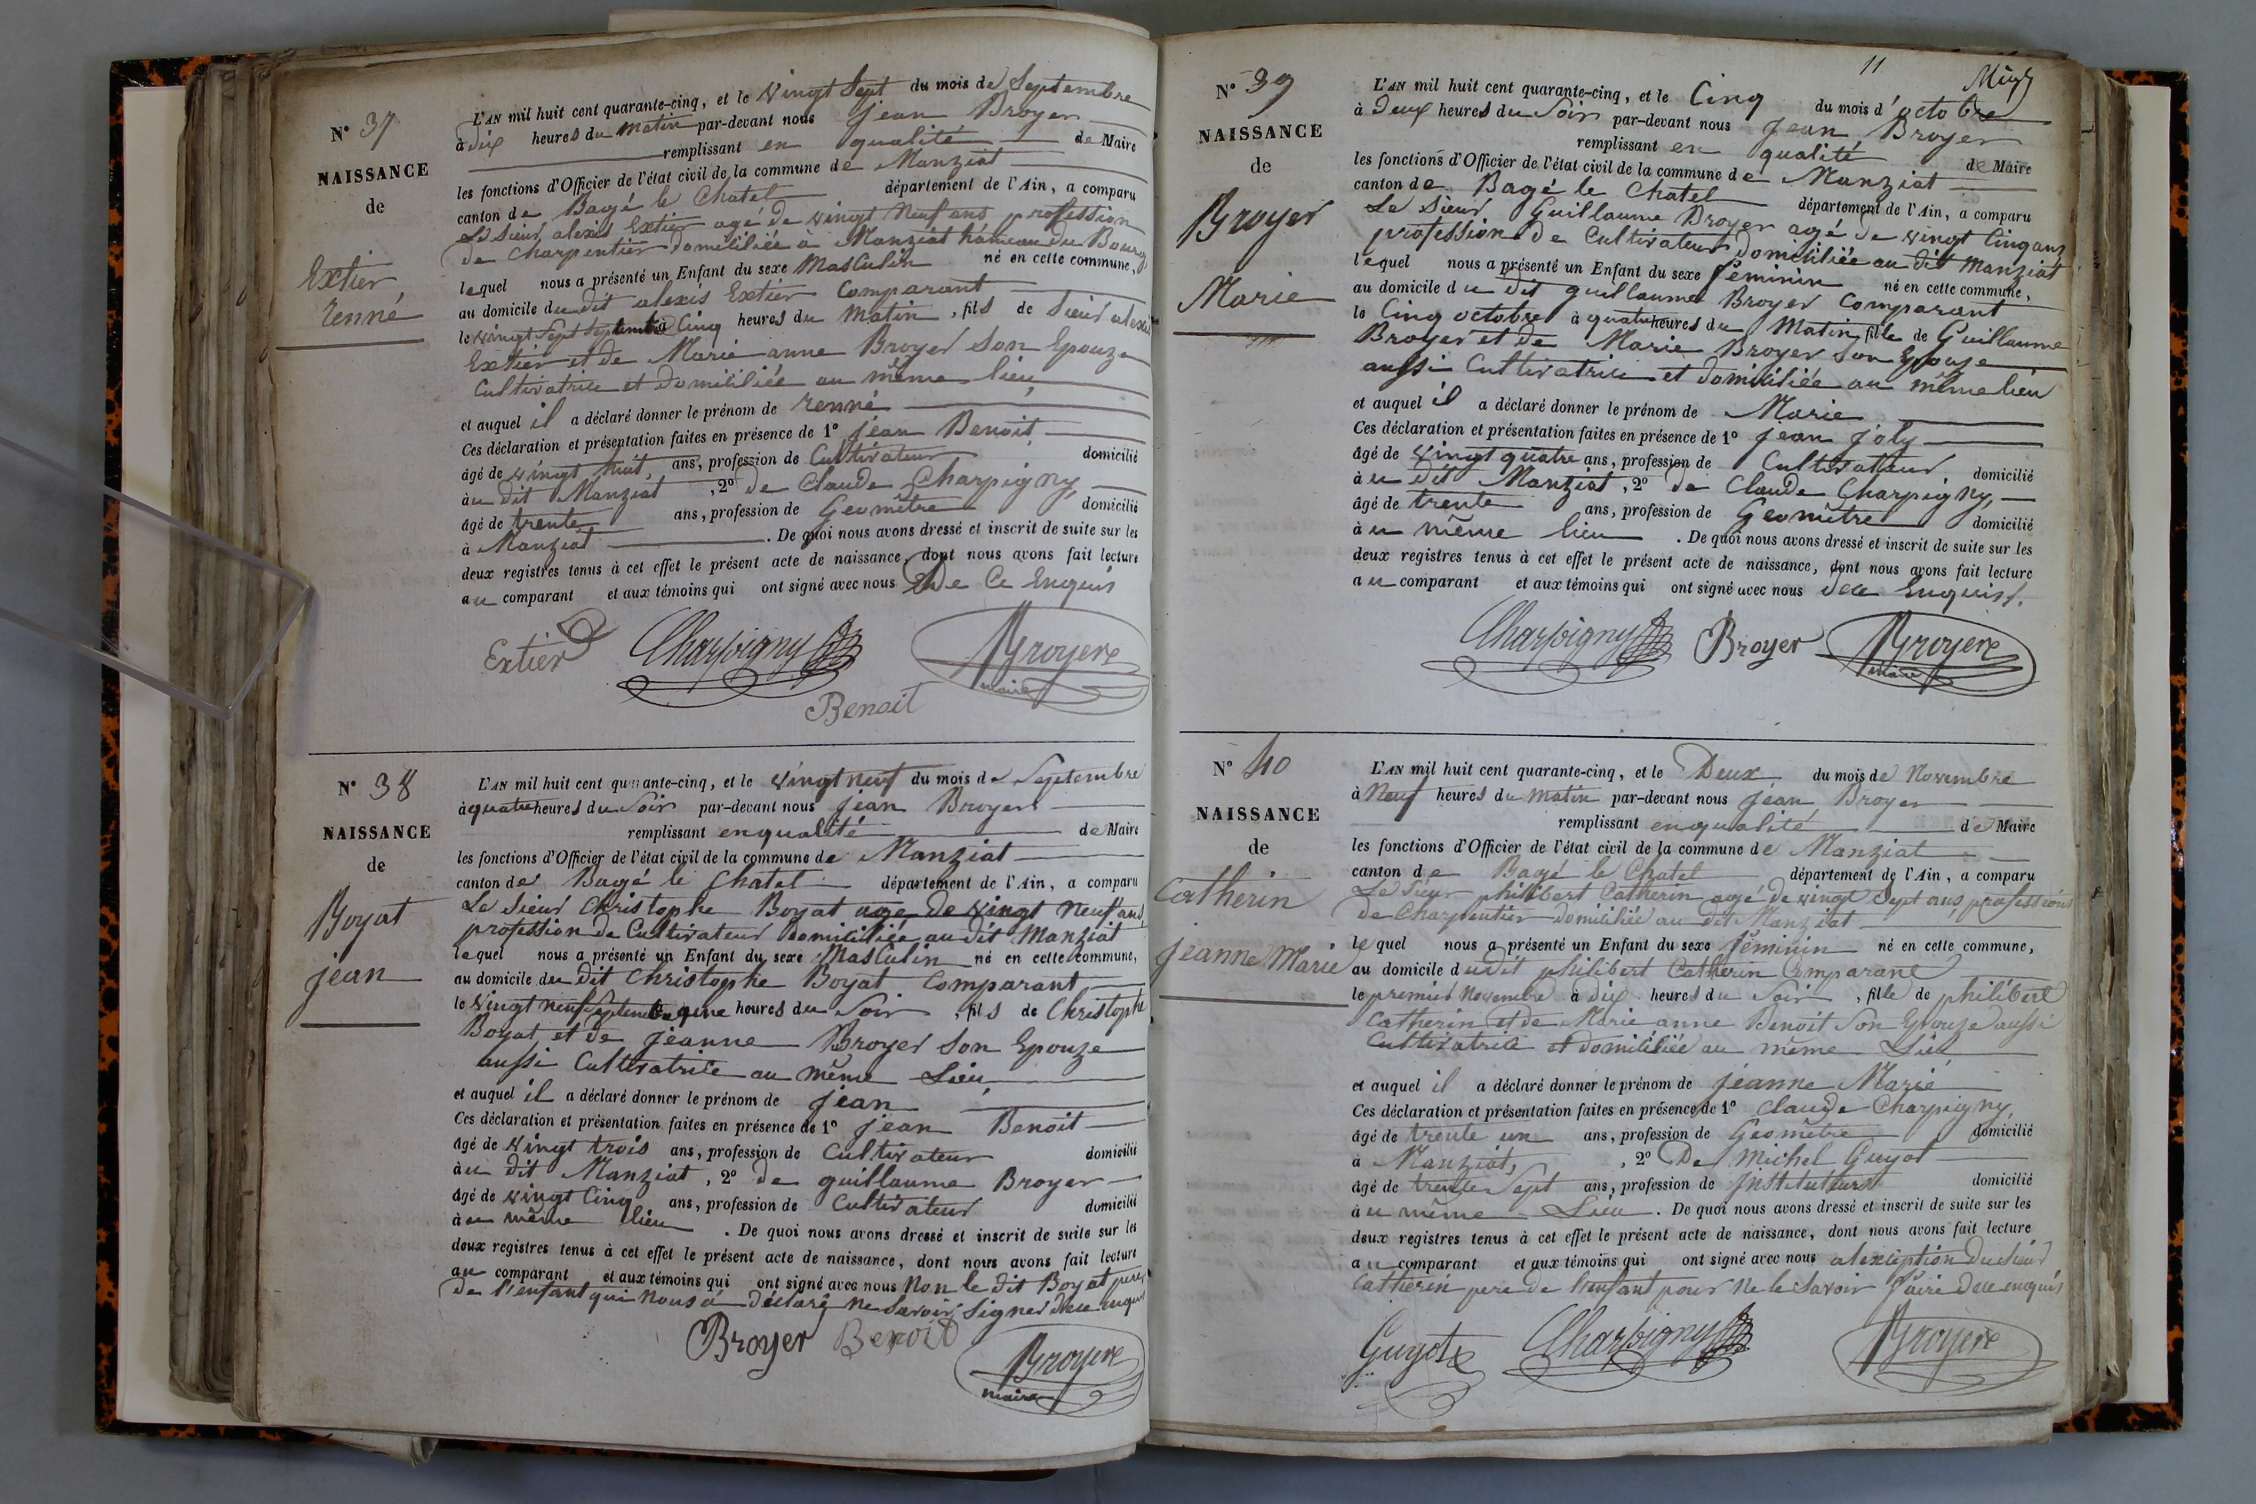 N° 37
NAISSANCE
de
Extier
renné
L'AN mil huit cent quarante-cinq, et le vingt Sept du mois de Septembre
à dix heures du matin par-devant nous jean Broyer
remplissant en qualité de Maire
les fonctions d'Officier de l'état civil de la commune de Manziat
canton de Bagé le Chatel département de l'Ain, a comparu
Le Sieur alexis Extier agé de vingt Neuf ans profession
de Charpentier domiciliée à Manziat hameau du Bourg
lequel nous a présenté un Enfant du sexe Masculin né en cette commune,
au domicile du dit alexis Extier Comparant
le vingt Sept Septembre à Cinq heures du matin, fils de Sieur alexis
Extier et de Marie anne Broyer Son Epouze
Cultivatrice et domiciliée au même lieu
et auquel il a déclaré donner le prénom de renné
Ces déclaration et présentation faites en présence de 1° jean Benoit
âgé de vingt huit, ans, profession de Cultivateur domicilié
à u dit Manziat, 2° de Claude Charpigny,
âgé de trente ans, profession de Geomêtre domicilié
à Manziat. De quoi nous avons dressé et inscrit de suite sur les
deux registres tenus à cet effet le présent acte de naissance, dont nous avons fait lecture
au comparant et aux témoins qui ont signé avec nous de Ce Enquis
Extier Charpigny Broyere
maire
Benoit
N° 38
NAISSANCE
de
Boyat
jean
L'AN mil huit cent quarante-cinq, et le vingt neuf du mois de Septembre
à quatre heures du Soir par-devant nous jean Broyer
remplissant en qualité de Maire
les fonctions d'Officier de l'état civil de la commune de Manziat
canton de Bagé le Chatel département de l'Ain, a comparu
Le Sieur Christophe Boyat agé de vingt neuf ans
profession de Cultivateur domiciliée au dit Manziat
lequel nous a présenté un Enfant du sexe Masculin né en cette commune,
au domicile du dit Christophe Boyat Comparant
le vingt neuf Septembre à une heures du Soir, fils de Christophe
Boyat et de jeanne Broyer Son Epouze
aussi Cultivatrice au même Lieu
et auquel il a déclaré donner le prénom de jean
Ces déclaration et présentation faites en présence de 1° jean Benoit
âgé de vingt trois ans, profession de Cultivateur domicilié
à u dit Manziat, 2° de guillaume Broyer
âgé de vingt Cinq ans, profession de Cultivateur domicilié
à u même lieu. De quoi nous avons dressé et inscrit de suite sur les
deux registres tenus à cet effet le présent acte de naissance, dont nous avons fait lecture
au comparant et aux témoins qui ont signé avec nous Non le dit Boyat pere
de l'enfant qui nous a déclaré ne Savoir Signer dece enquis
Broyer Benoit Broyere
maire
11
N° 39
NAISSANCE
de
Broyer
Marie
L'AN mil huit cent quarante-cinq, et le Cinq du mois d'octobre
à Deux heures du Soir par-devant nous jean Broyer
remplissant en qualité de Maire
les fonctions d'Officier de l'état civil de la commune de Manziat
canton de Bagé le Chatel département de l'Ain, a comparu
Le Sieur Guillaume Broyer agé de vingt Cinq ans
profession de Cultivateur domiciliée au dit Manziat
lequel nous a présenté un Enfant du sexe féminin né en cette commune,
au domicile du dit guillaume Broyer Comparant
le Cinq octobre à quatre heures du Matin, fille de Guillaume
Broyer et de Marie Broyer Son Epouse
aussi Cultivatrice et domiciliée au même lieu
et auquel il a déclaré donner le prénom de Marie
Ces déclaration et présentation faites en présence de 1° jean joly
âgé de vingt quatre ans, profession de Cultivateur domicilié
à u dit Manziat, 2° de Claude Charpigny,
âgé de trente ans, profession de Geomêtre domicilié
à u même lieu. De quoi nous avons dressé et inscrit de suite sur les
deux registres tenus à cet effet le présent acte de naissance, dont nous avons fait lecture
au comparant et aux témoins qui ont signé avec nous dece Enquis.
Charpigny Broyer Broyere
maire
N° 40
NAISSANCE
de
Catherin
jeanne Marie
L'AN mil huit cent quarante-cinq, et le Deux du mois de Novembre
à Neuf heures du matin par-devant nous jean Broyer
remplissant en qualité de Maire
les fonctions d'Officier de l'état civil de la commune de Manziat
canton de Bagé le Chatel département de l'Ain, a comparu
Le Sieur philibert Catherin agé de vingt Sept ans, profession
de Charpentier domiciliée au dit Manziat
lequel nous a présenté un Enfant du sexe féminin né en cette commune,
au domicile du dit philibert Catherin Comparant
le premier Novembre à dix heures du Soir, fille de philibert
Catherin et de Marie anne Benoit Son Epouze aussi
Cultivatrice et domiciliée au même Lieu
et auquel il a déclaré donner le prénom de jeanne Marie
Ces déclaration et présentation faites en présence de 1° Claude Charpigny
âgé de trente un ans, profession de Geomêtre domicilié
à Manziat, 2° De Michel Guyot
âgé de trente Sept ans, profession de jnstituteur domicilié
à u même Lieu. De quoi nous avons dressé et inscrit de suite sur les
deux registres tenus à cet effet le présent acte de naissance, dont nous avons fait lecture
au comparant et aux témoins qui ont signé avec nous alexception du Sieur
Catherin pere de l'enfant pour Ne le Savoir faire dece enquis
Guyot Charpigny Broyere